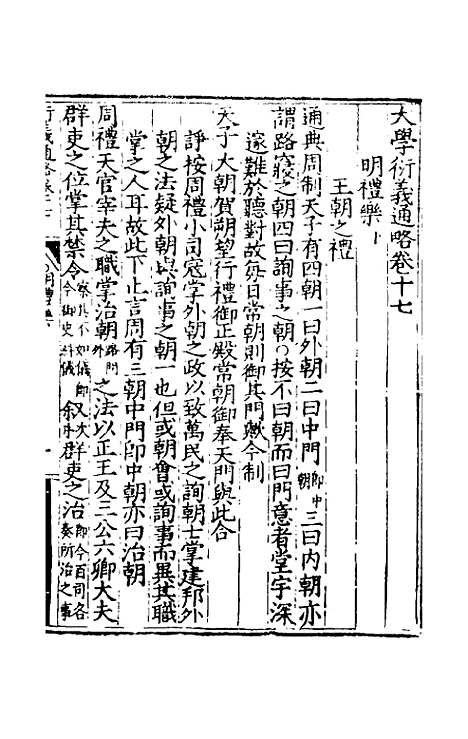 大學衍義通略卷十七
明禮樂上
王朝之禮
通典周制天子有四朝一曰外朝二曰中門即中朝三曰內朝亦
謂路寢之朝四曰詢事之朝○按不曰朝而曰門意者堂宇深
邃難於聽對故每日常朝則御其門歟今制
天子大朝賀朔望行禮御正殿常朝御奉天門與此合
諍按周禮小司寇掌外朝之政以致萬民之詢朝士掌建邦外
朝之法疑外朝與詢事之朝一也但或朝會或詢事而異其職
掌之人耳故此下止言周有三朝中門即中朝亦曰治朝
周禮天官宰夫之職掌治朝路門外之法以正王及三公六卿大夫
群吏之位掌其禁令察其不如儀即今御史糾儀敘群吏之治即今百司各奏所治之事